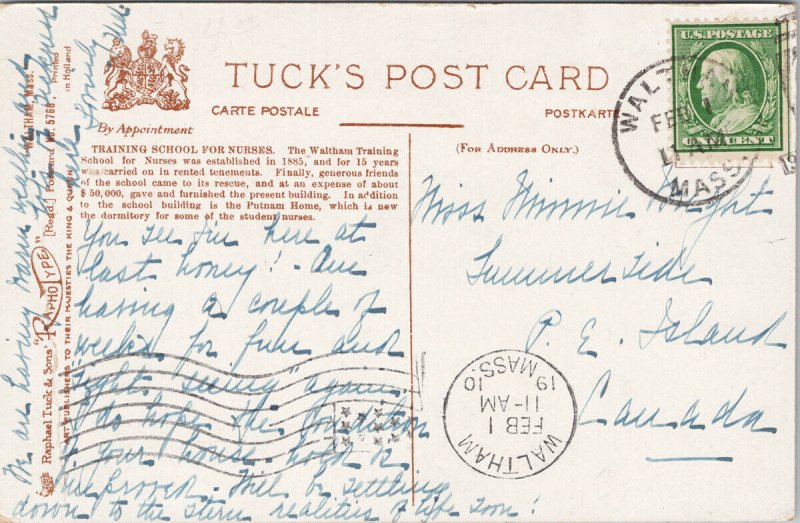 TUCK'S POST CARD
CARTE POSTALE
POSTKARTE
By Appointment
(FOR ADDRESS ONLY.)
TRAINING SCHOOL FOR NURSES. The Waltham Training
School for Nurses was established in 1885, and for 15 years
was carried on in rented tenements. Finally, generous friends
of the school came to its rescue, and at an expense of about
$50,000, gave and furnished the present building. In addition
to the school building is the Putnam Home, which is now
the dormitory for some of the student nurses.
You see I'm here at
last honey! Are
having a couple of
weeks for fun and
"sight seeing" again
I do hope the condition
of your house-hold is
improved. Will be settling
down to the stern realities of life soon!
We are having warm weather and
lovely
Miss Minnie Wright
Summerside
P. E. Island
Canada
U.S. POSTAGE
CENT
WALTHAM
FEB 1
11 AM
MASS.
WALTHAM
FEB 1
11-AM
19 10
MASS.
WALTHAM, Mass.
Raphael Tuck & Sons' "RAPHOTYPE" [Regd.] Postcard No. 5768, Printed in Holland
ART PUBLISHERS TO THEIR MAJESTIES THE KING & QUEEN